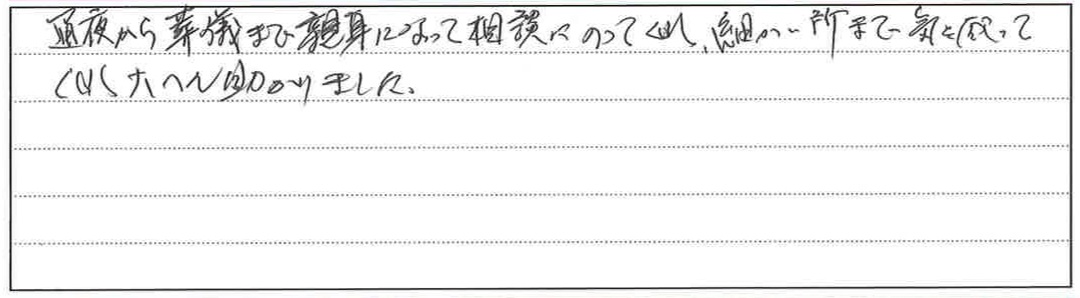 通夜から葬儀まで親身になって相談にのってくれ、細かい所まで気を使って
くれ大へん助かりました。